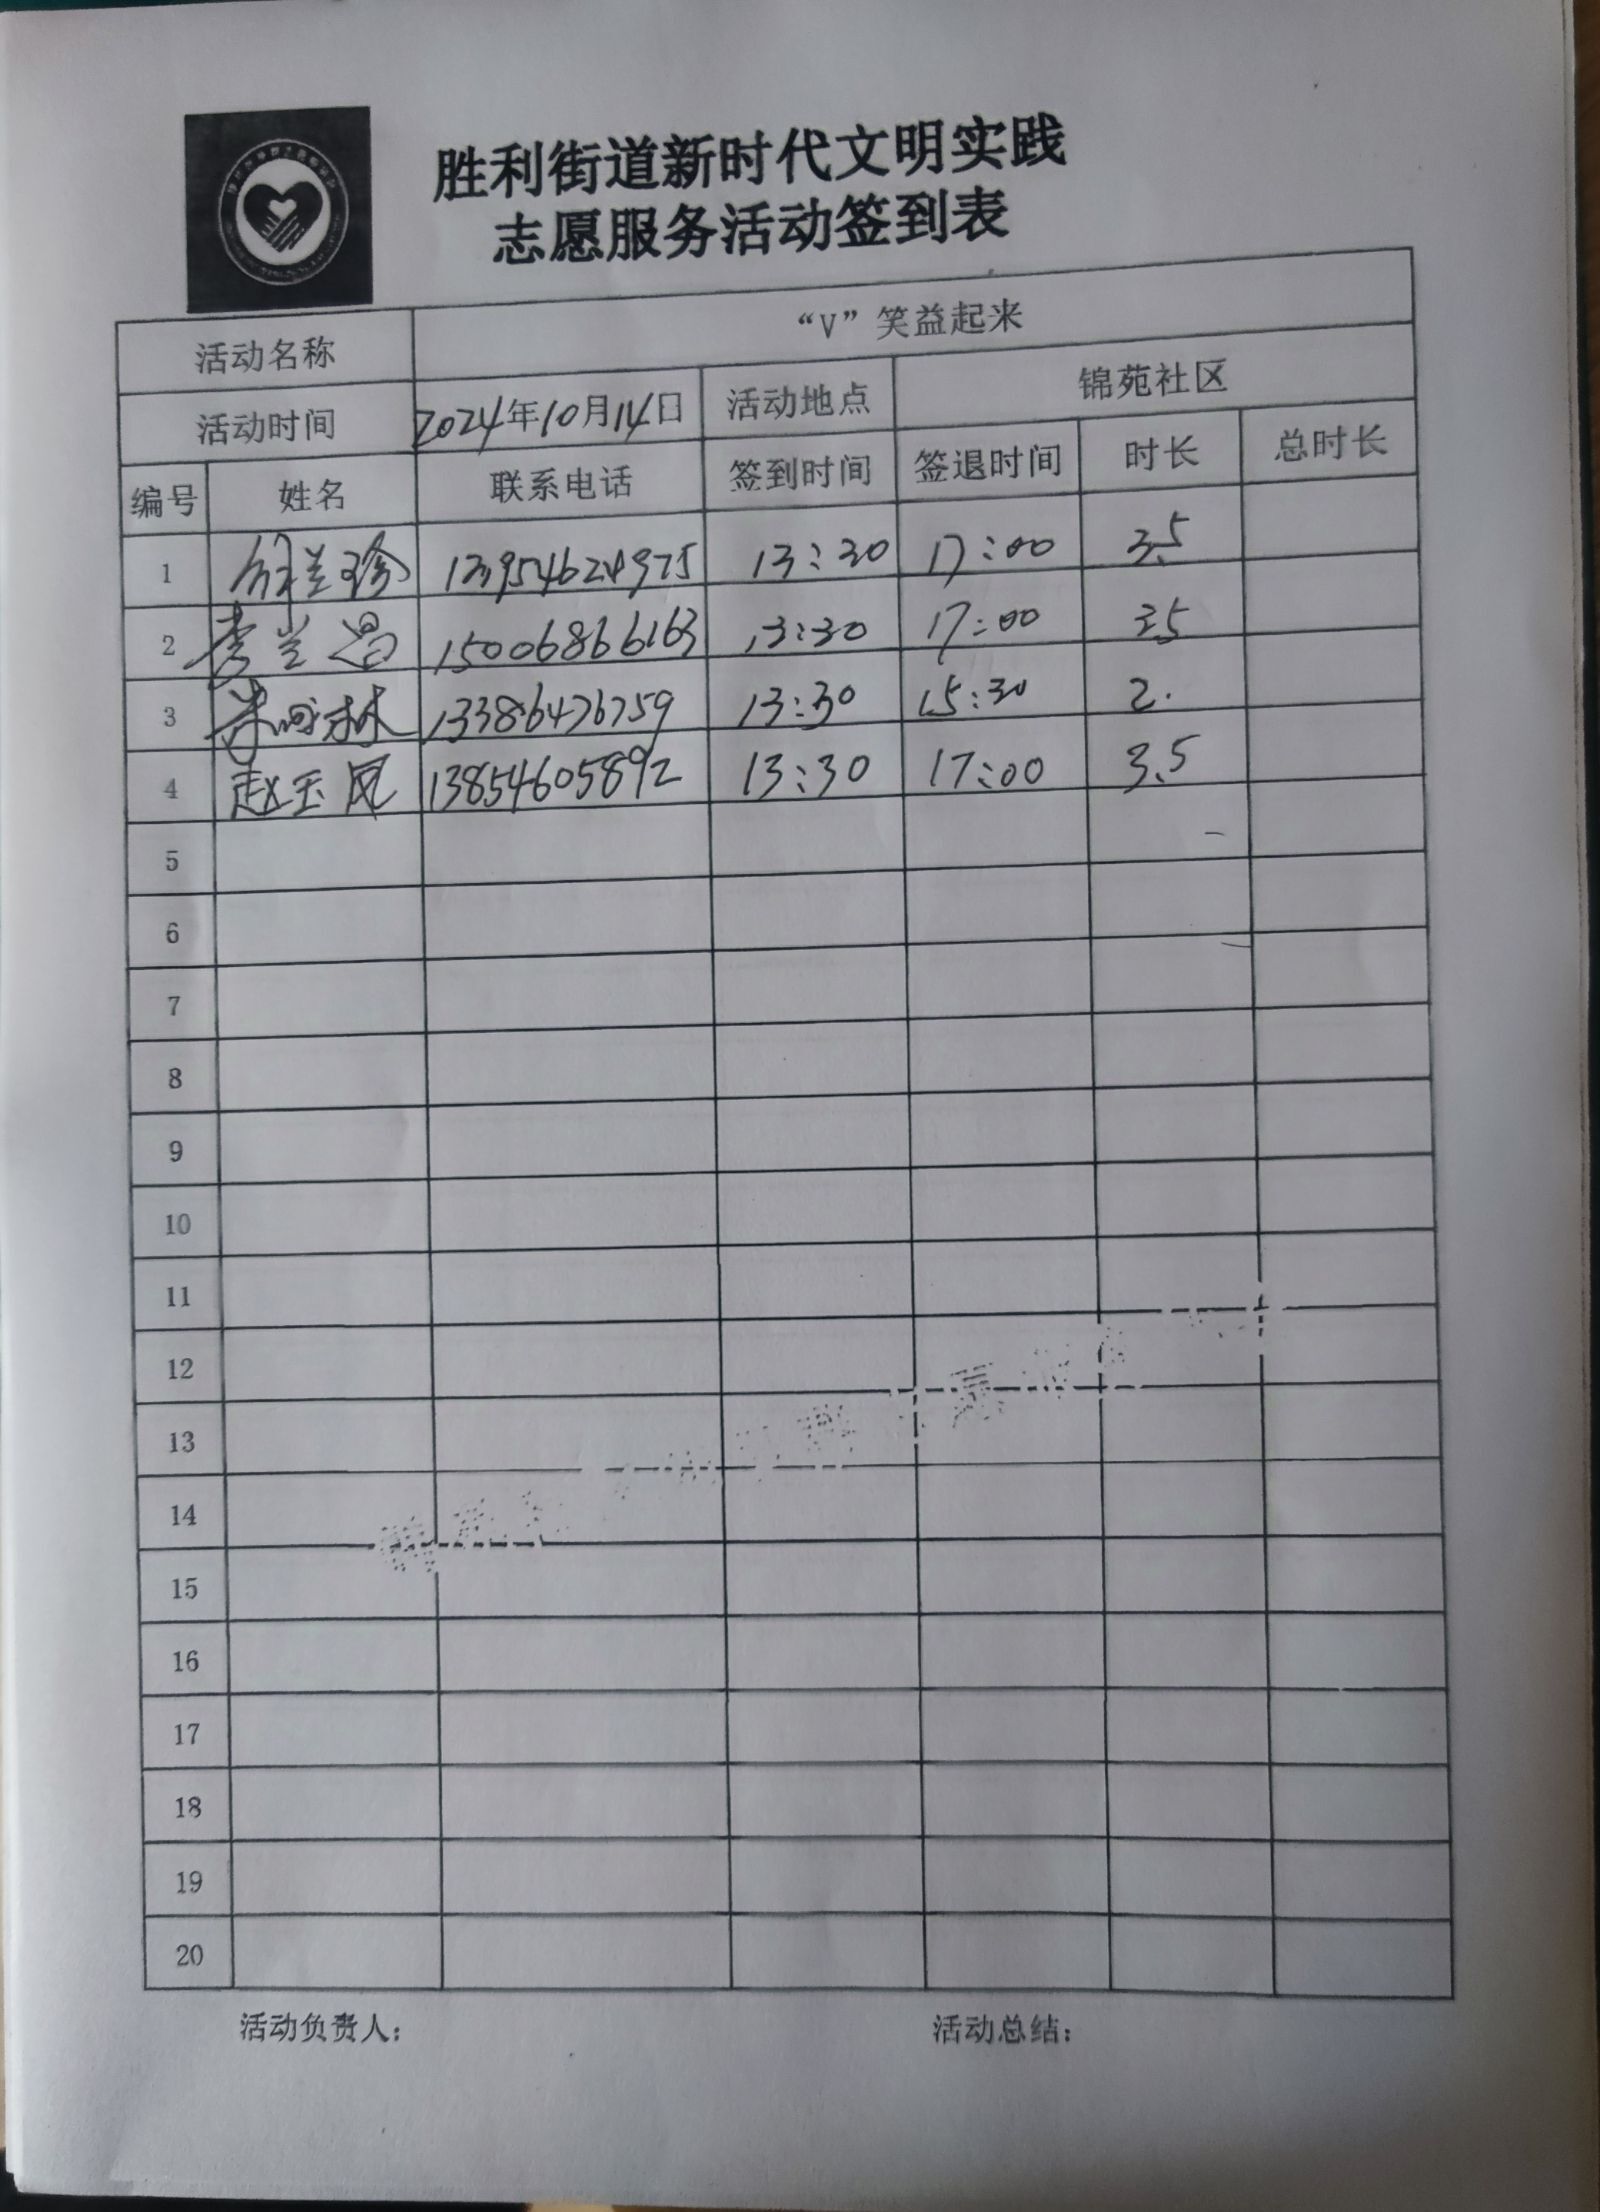 胜利街道新时代文明实践
志愿服务活动签到表
活动名称 “V”笑益起来
活动时间 2024年10月14日 活动地点 锦苑社区
编号 姓名 联系电话 签到时间 签退时间 时长 总时长
1 徐兰珍 13954624975 13:30 17:00 3.5
2 李兰 15006866163 13:30 17:00 3.5
3 林 13386476759 13:30 15:30 2.
4 赵玉凤 13854605892 13:30 17:00 3.5
5
6
7
8
9
10
11
12
13
14
15
16
17
18
19
20
活动负责人: 活动总结: